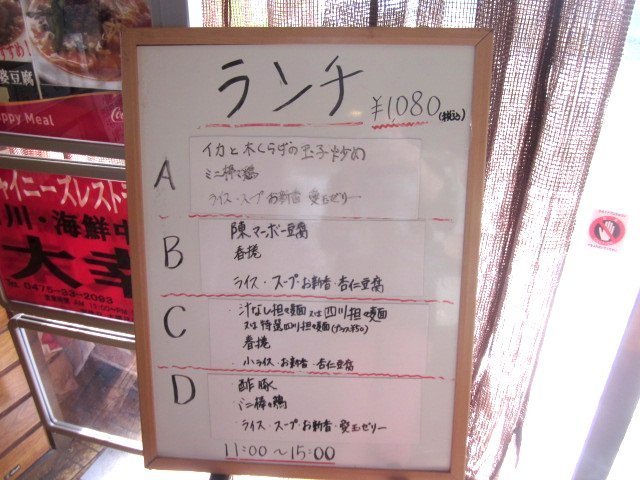 ランチ
¥1,080(税込)
A
イカと木くらげの玉子炒め
ミニ棒々鶏
ライス・スープ お新香 愛玉ゼリー
B
陳マーボー豆腐
春捲
ライス・スープ・お新香・杏仁豆腐
C
・汁なし担々麺 又は 四川担々麺
又は 特選四川担々麺(プラス150)
春捲
小ライス・お新香・杏仁豆腐
D
酢豚
ミニ棒々鶏
・ライス・スープ・お新香・愛玉ゼリー
11:00〜15:00
婆豆腐
appy Meal
ャイニーズレスト
川・海鮮中
大幸
TEL 0475-33-2093
営業時間 AM 11:00〜PM